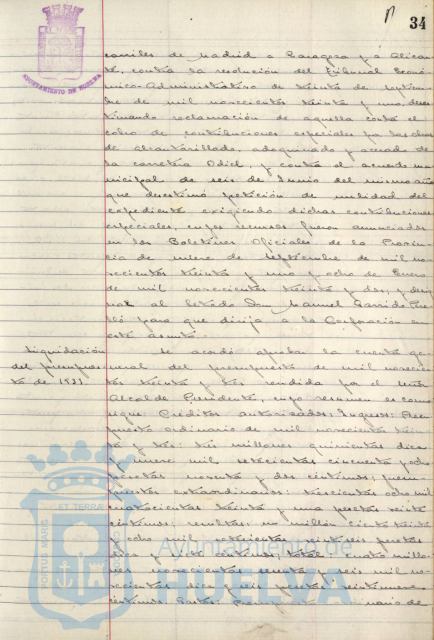 34
AYUNTAMIENTO DE HUELVA
carriles de Madrid a Zaragoza y a Alican-
te, contra la resolución del Tribunal Econó-
mico-Administrativo de treinta de Septiem-
bre de mil novecientos treinta y uno, deses-
timando reclamación de aquella contra el
cobro de contribuciones especiales por las obras
de alcantarillado, adoquinado y acerado de
la carretera Odiel, y contra el acuerdo mu-
nicipal de seis de Junio del mismo año
que desestimó petición de nulidad del
expediente exigiendo dichas contribuciones
especiales, cuyos recursos fueron anunciados
en los Boletines Oficiales de la Provin-
cia de nueve de Septiembre de mil no-
vecientos treinta y uno y ocho de Enero
de mil novecientos treinta y dos, y desig-
nar al letrado Don Manuel Garrido
para que dirija a la Corporación en
este asunto.
Liquidación
del presupues-
to de 1933.
Se acordó aprobar la cuenta ge-
neral del presupuesto de mil novecien-
tos treinta y tres rendida por el señor
Alcalde Presidente, cuyo resumen es como
sigue: Créditos autorizados: Ingresos: Presu-
puesto ordinario de mil novecientos trein-
ta y tres: tres millones quinientas diez
y nueve mil setecientas cincuenta y ocho
pesetas noventa y dos céntimos; presu-
puestos extraordinarios: trescientas ocho mil
cuatrocientas treinta y una pesetas veinte
céntimos; resultas: un millón ciento treinta
y ocho mil setecientas veintiseis pesetas
diez y céntimos; total: cuatro millo-
nes novecientas sesenta y seis mil no-
vecientas diez y seis pesetas
céntimos. Gastos: Presupuesto ordinario de
ET TERRA
PORTUS MARIS
Ayuntamiento de
HUELVA